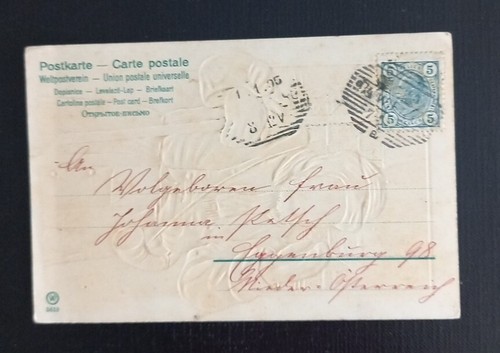 Postkarte — Carte postale
Weltpostverein — Union postale universelle
Dopisnica — Levelező-Lap — Brefkaart
Cartolina postale — Post card — Brefkort
Открытое письмо
5
5
5
5
An
Wolgeboren Frau
Johanna Petsch
in
98
Nieder-Österreich